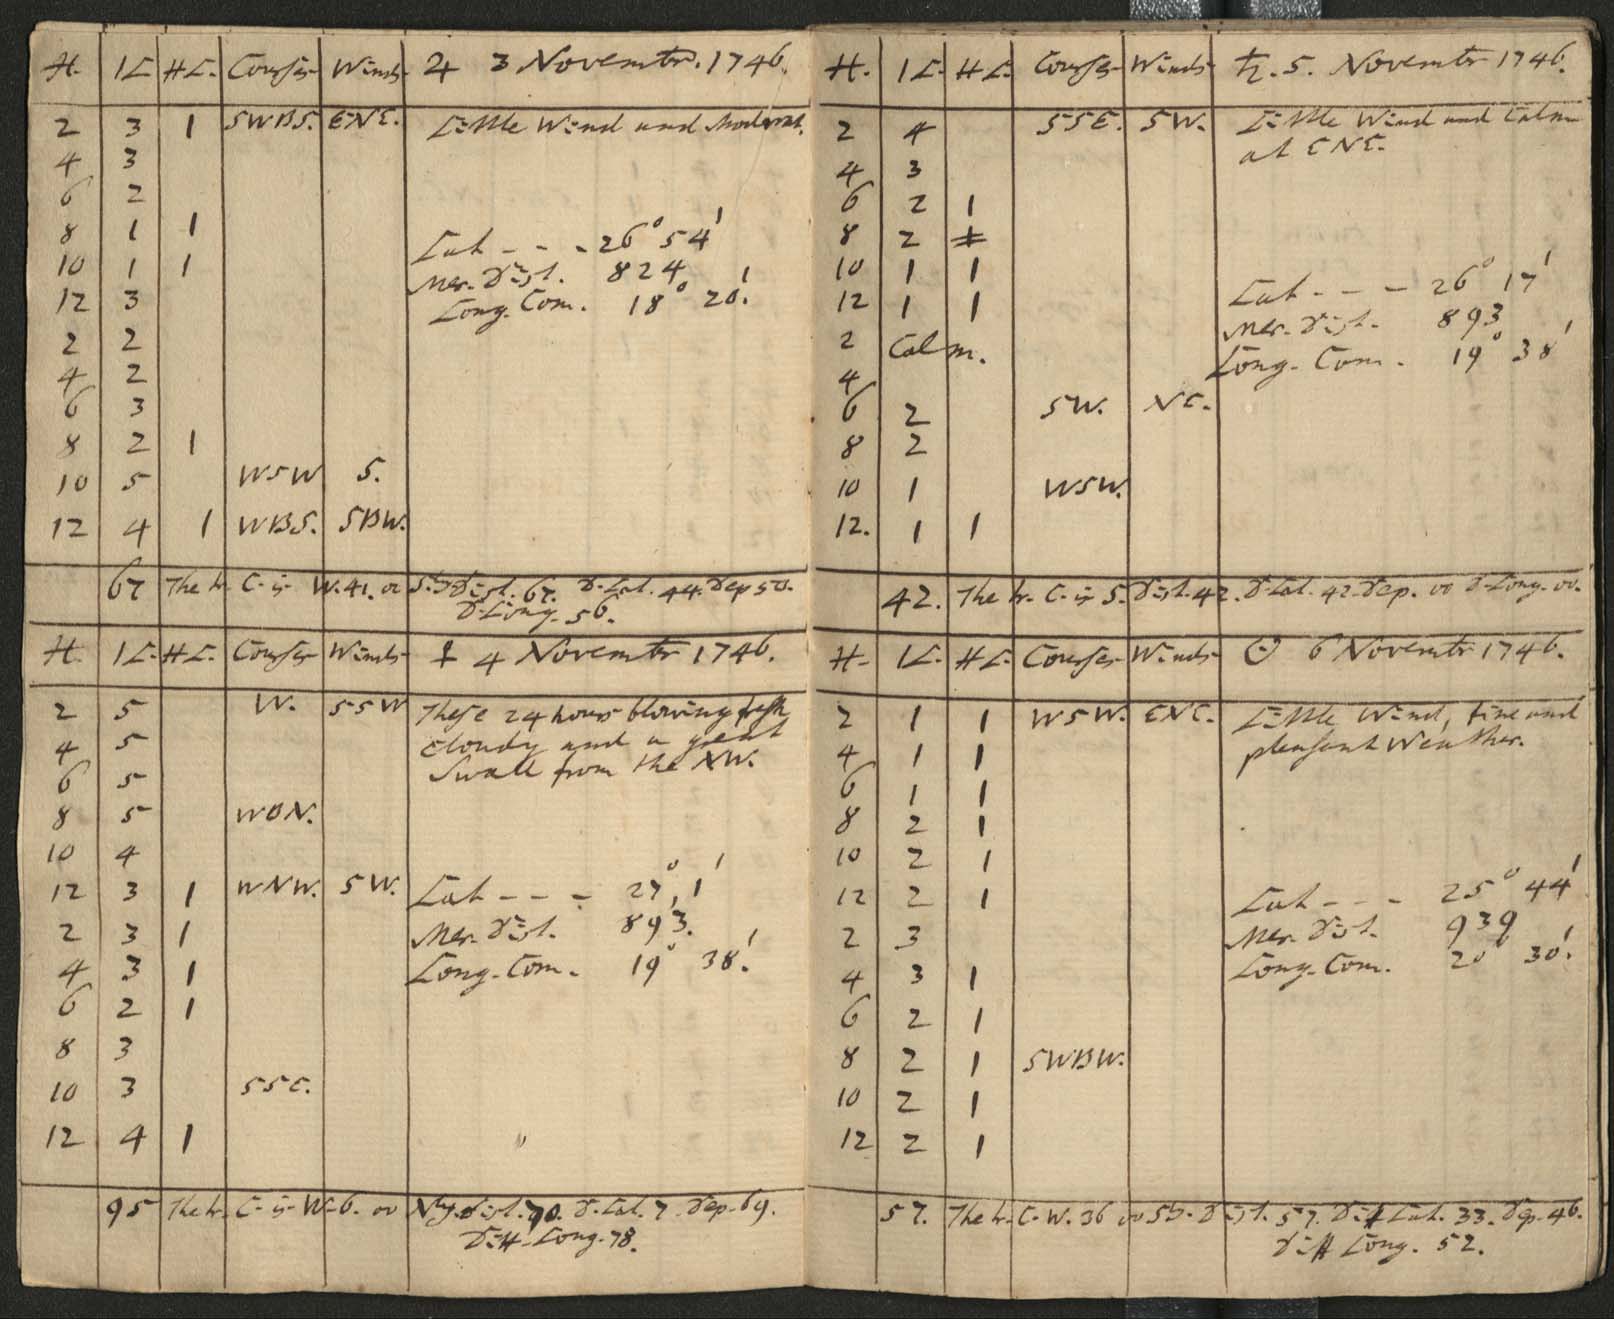 H. K HK. Courses Winds ♃ 3 Novembr. 1746.
2 3 1 SWBS. ENE. Little Wind and Moderat.
4 3
6 2
8 1 1
Lat - - - 26° 54'
10 1 1
Mer. Dist. 824
12 3
Long. Com. 18° 20'.
2 2
4 2
6 3
8 2 1
10 5 WSW S.
12 4 1 WBS. SBW.
67 The tr. C. is W. 41. 00 S. Dist. 67. D. Lat. 44. Dep 50.
D Long. 56.
H. K. HK. Courses Winds ♀ 4 Novembr 1746.
2 5 W. SSW These 24 hours blowing fresh
4 5 cloudy and a great
6 5 Swell from the NW.
8 5 WBN.
10 4
12 3 1 WNW. SW. Lat - - - 27°, 1'
2 3 1 Mer. Dist. 893.
4 3 1 Long. Com. 19° 38'.
6 2 1
8 3
10 3 SSE.
12 4 1
95 The tr. C. is W. 6. 00 Nly. Dist. 70. D. Lat. 7. Dep. 69.
Diff. Long. 78.
H. K. HK. Courses Winds ♄. 5. Novembr 1746.
2 4 SSE. SW. Little Wind and Calm
at ENE.
4 3
6 2 1
8 2 1
10 1 1
Lat - - - 26° 17'
12 1 1
Mer. Dist. 893
2 Calm.
Long. Com. 19° 38'
4
6 2 SW. NE.
8 2
10 1 WSW.
12. 1 1
42. The tr. C. is S. Dist. 42. D. Lat. 42. Dep. 00 D. Long. 00.
H. K. HK. Courses Winds ☉ 6 Novembr 1746.
2 1 1 WSW. ENE. Little Wind, fine and
4 1 1 pleasant Weather.
6 1 1
8 2 1
10 2 1
12 2 1 Lat - - - 25° 44'
2 3 Mer. Dist. 939
4 3 1 Long. Com. 20° 30'.
6 2 1
8 2 1 SWBW.
10 2 1
12 2 1
57. The tr. C. W. 36 00 S. Dist. 57. Diff Lat. 33. Dep. 46.
Diff Long. 52.